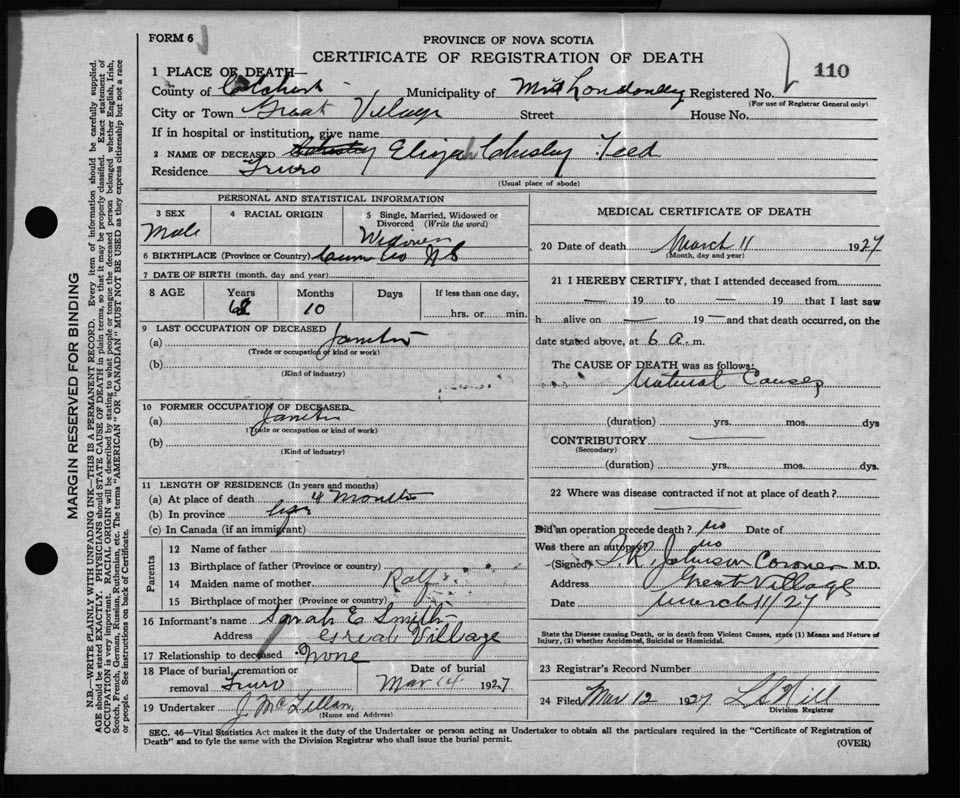 FORM 6
PROVINCE OF NOVA SCOTIA
CERTIFICATE OF REGISTRATION OF DEATH
110
1 PLACE OF DEATH—
County of Colchester Municipality of West Londonderry Registered No.
(For use of Registrar General only)
City or Town Great Village Street House No.
If in hospital or institution, give name
2 NAME OF DECEASED Elizah Chesley Teed
Residence Truro
(Usual place of abode)
PERSONAL AND STATISTICAL INFORMATION
3 SEX
Male
4 RACIAL ORIGIN
5 Single, Married, Widowed or Divorced (Write the word)
Widower
6 BIRTHPLACE (Province or Country) Cum Co N S
7 DATE OF BIRTH (month, day and year)
8 AGE Years Months Days If less than one day,
68 10 hrs. or min.
9 LAST OCCUPATION OF DECEASED
(a) Janitor
(Trade or occupation or kind or work)
(b)
(Kind of industry)
10 FORMER OCCUPATION OF DECEASED
(a) Janitor
(Trade or occupation or kind of work)
(b)
(Kind of industry)
11 LENGTH OF RESIDENCE (In years and months)
(a) At place of death 4 Months
(b) In province life
(c) In Canada (if an immigrant)
Parents
12 Name of father
13 Birthplace of father (Province or country)
14 Maiden name of mother Ralf
15 Birthplace of mother (Province or country)
16 Informant's name Sarah E Smith
Address Great Village
17 Relationship to deceased None
18 Place of burial, cremation or removal Truro
Date of burial
Mar 14 1927
19 Undertaker J. McLellan
(Name and Address)
MEDICAL CERTIFICATE OF DEATH
20 Date of death March 11 1927
(Month, day and year)
21 I HEREBY CERTIFY, that I attended deceased from
— 19 to — 19 that I last saw
h alive on — 19 — and that death occurred, on the
date stated above, at 6 a. m.
The CAUSE OF DEATH was as follows:
Natural Causes
(duration) yrs. mos. dys
CONTRIBUTORY
(Secondary)
(duration) yrs. mos. dys.
22 Where was disease contracted if not at place of death?
Did an operation precede death? no Date of
Was there an autopsy? no
(Signed) Johnson Coroner M.D.
Address Great Village
Date March 11/27
State the Disease causing Death, or in death from Violent Causes, state (1) Means and Nature of
Injury, (2) whether Accidental, Suicidal or Homicidal.
23 Registrar's Record Number
24 Filed Mar 12 1927 Hill
Division Registrar
SEC. 46—Vital Statistics Act makes it the duty of the Undertaker or person acting as Undertaker to obtain all the particulars required in the "Certificate of Registration of
Death" and to fyle the same with the Division Registrar who shall issue the burial permit.
(OVER)
MARGIN RESERVED FOR BINDING
N.B.—WRITE PLAINLY WITH UNFADING INK—THIS IS A PERMANENT RECORD. Every item of information should be carefully supplied.
AGE should be stated EXACTLY. PHYSICIANS should STATE CAUSE OF DEATH in plain terms, so that it may be properly classified. Exact statement of
OCCUPATION is very important. RACIAL ORIGIN will be described by stating to what people or tongue the deceased person belonged whether English, Irish,
Scotch, French, German, Russian, Ruthenian, etc. The terms "AMERICAN" OR "CANADIAN" MUST NOT BE USED as they express citizenship but not a race
or people. See instructions on back of Certificate.